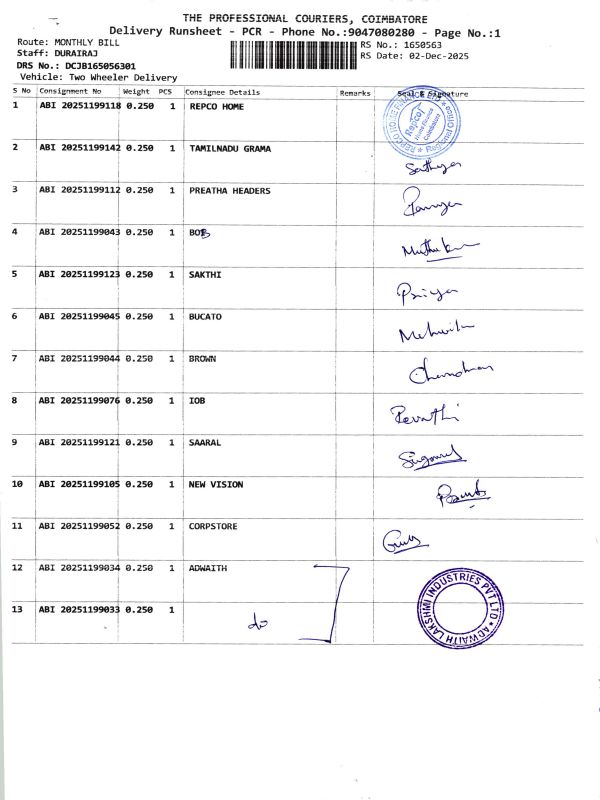 THE PROFESSIONAL COURIERS, COIMBATORE
Delivery Runsheet - PCR - Phone No.:9047080280 - Page No.:1
Route: MONTHLY BILL
Staff: DURAIRAJ
DRS No.: DCJB165056301
Vehicle: Two Wheeler Delivery
RS No.: 1650563
RS Date: 02-Dec-2025
S No Consignment No Weight PCS Consignee Details Remarks Seal & Signature
1 ABI 20251199118 0.250 1 REPCO HOME
2 ABI 20251199142 0.250 1 TAMILNADU GRAMA
3 ABI 20251199112 0.250 1 PREATHA HEADERS
4 ABI 20251199043 0.250 1 BOB
5 ABI 20251199123 0.250 1 SAKTHI
Priya
6 ABI 20251199045 0.250 1 BUCATO
7 ABI 20251199044 0.250 1 BROWN
8 ABI 20251199076 0.250 1 IOB
Revathi
9 ABI 20251199121 0.250 1 SAARAL
10 ABI 20251199105 0.250 1 NEW VISION
11 ABI 20251199052 0.250 1 CORPSTORE
12 ABI 20251199034 0.250 1 ADWAITH
13 ABI 20251199033 0.250 1 do
ADWAITH LAKSHMI INDUSTRIES PVT LTD